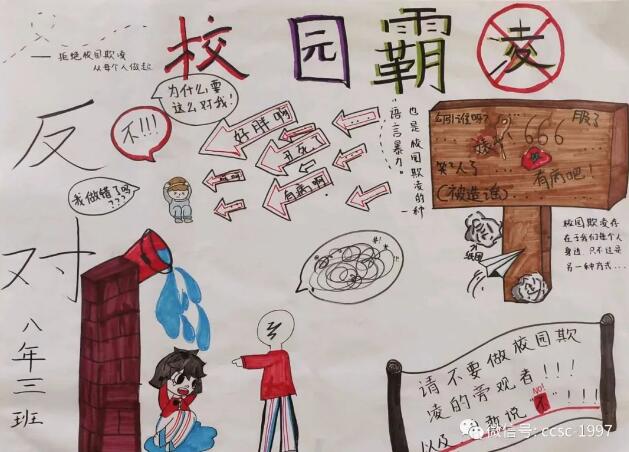 校园霸凌
——拒绝校园欺凌
从每个人做起
反对
八年三班
不!!!
为什么要
这么对我!
我做错了吗?
???
好胖啊
丑死了
有病啊
也是校园欺凌的一种
"语言暴力。
勾引谁呢?
服了
666
笑死人了
有病吧!
(被造谣)
校园欺凌存
在于我们每个人
身边,只不过是
另一种方式...
请不要做校园欺
凌的旁观者!!!
以及 敢说"不"!!!
NO!
微信号: ccsc-1997